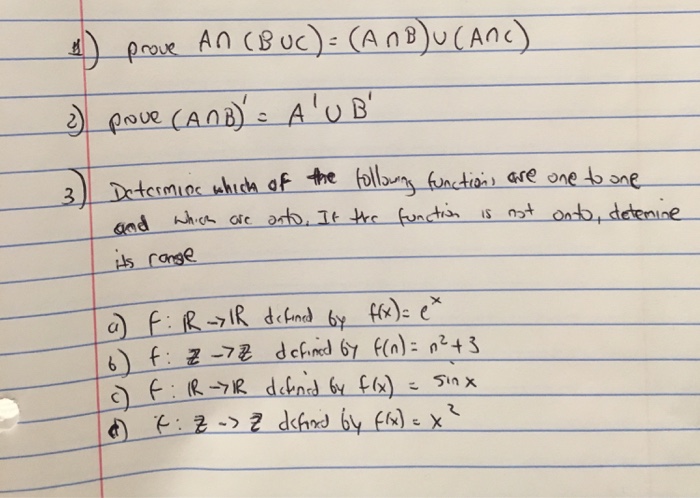 1) prove A∩(B∪C)=(A∩B)∪(A∩C)
2) prove (A∩B)' = A'∪B'
3) Determine which of the following functions are one to one
and which are onto. If the function is not onto, detemine
its range
a) f: ℝ→ℝ defined by f(x)=e^x
b) f: ℤ→ℤ defined by f(n)=n²+3
c) f: ℝ→ℝ defined by f(x) = sinx
d) f: ℤ→ℤ defined by f(x)=x²